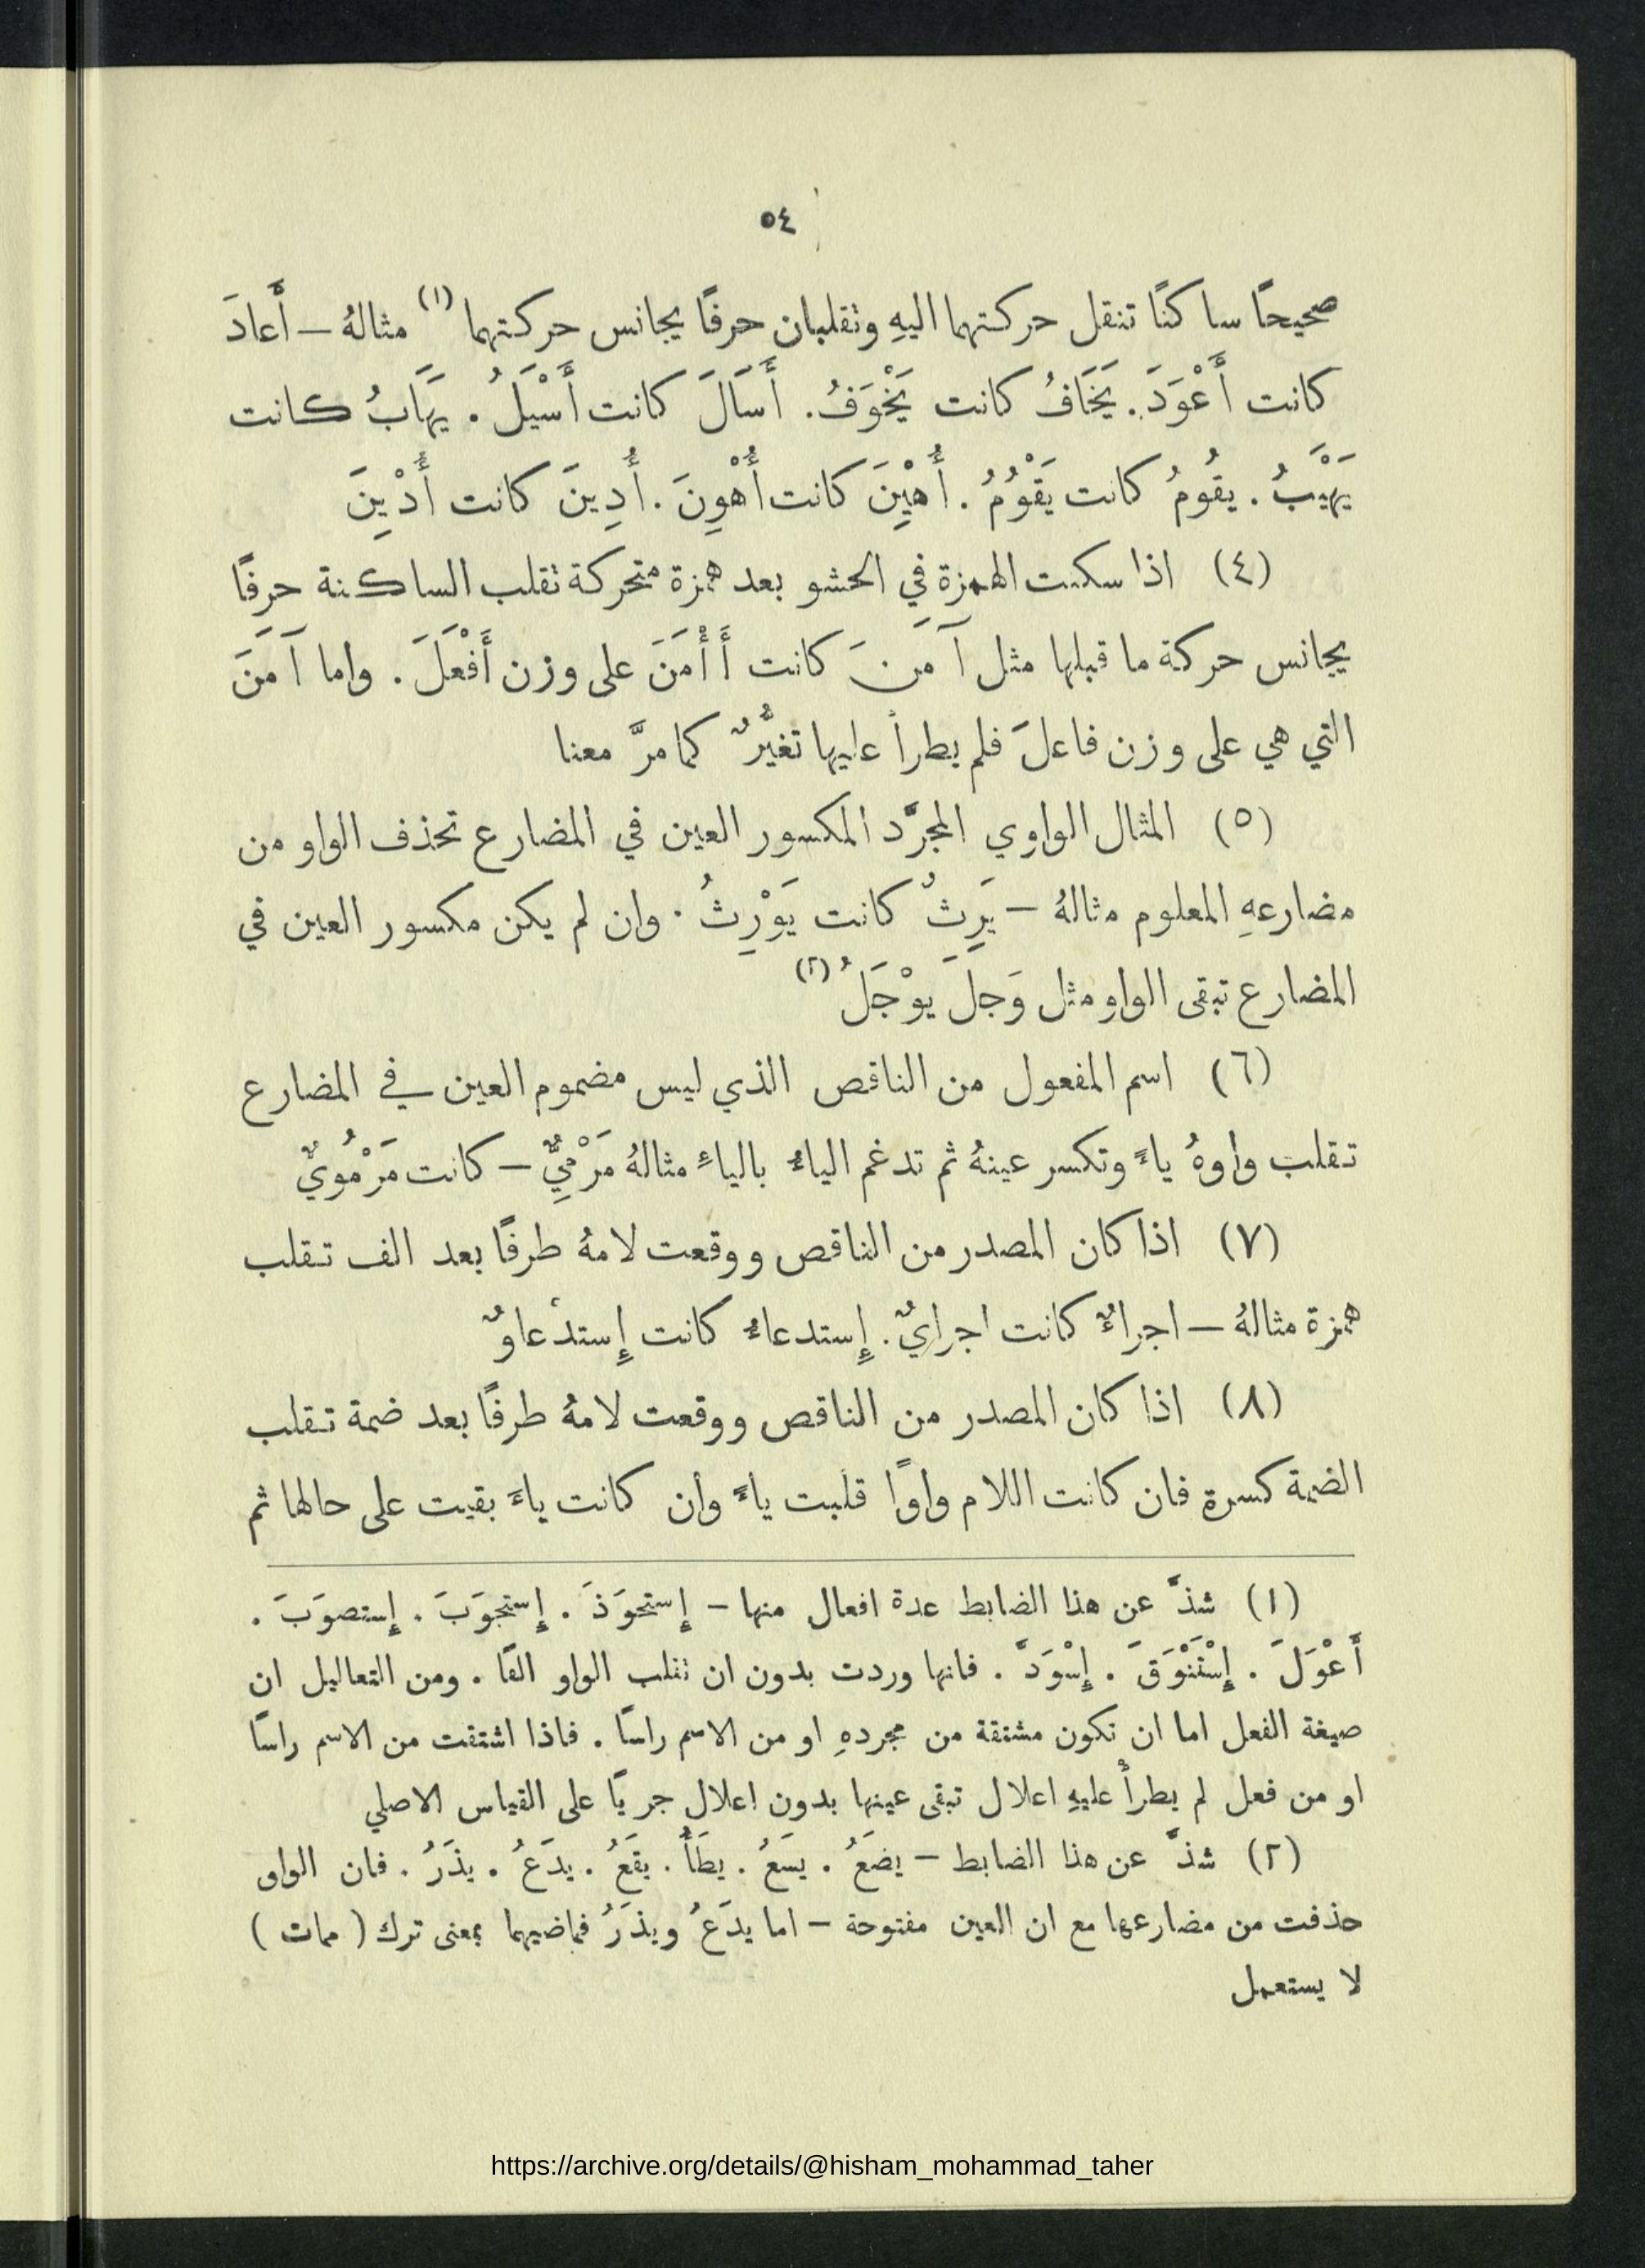 ٥٤
صحيحًا ساكنًا تنقل حركتهما اليهِ وتقلبان حرفًا يجانس حركتهما (١) مثالهُ — أَعادَ
كانت أَعْوَدَ. يَخَافُ كانت يَخْوَفُ. أَسَالَ كانت أَسْيَلَ. يَهَابُ كانت
يَهْيَبُ. يقُومُ كانت يَقْوُمُ. أُهْيِنَ كانت أُهْوِنَ. أُدِينَ كانت أُدْيِنَ
(٤) اذا سكنت الهمزة في الحشو بعد همزة متحركة تقلب الساكنة حرفًا
يجانس حركة ما قبلها مثل آمَنَ كانت أَأْمَنَ على وزن أَفْعَلَ. واما آمَنَ
التي هي على وزن فاعلَ فلم يطرأ عليها تغيُّرٌ كما مرَّ معنا
(٥) المثال الواوي المجرَّد المكسور العين في المضارع تحذف الواو من
مضارعهِ المعلوم مثالهُ — يَرِثُ كانت يَوْرِثُ. وان لم يكن مكسور العين في
المضارع تبقى الواو مثل وَجِلَ يوْجَلُ (٢)
(٦) اسم المفعول من الناقص الذي ليس مضموم العين في المضارع
تقلب واوهُ ياءً وتكسر عينهُ ثم تدغم الياءُ بالياءِ مثالهُ مَرْمِيٌّ — كانت مَرْمُويٌ
(٧) اذا كان المصدر من الناقص ووقعت لامهُ طرفًا بعد الف تقلب
همزة مثالهُ — اجراءٌ كانت اجرايٌ. إِستدعاءٌ كانت إِستدْعاوٌ
(٨) اذا كان المصدر من الناقص ووقعت لامهُ طرفًا بعد ضمة تقلب
الضمة كسرة فان كانت اللام واوًا قلبت ياءً وان كانت ياءً بقيت على حالها ثم
(١) شذَّ عن هذا الضابط عدة افعال منها — إِستحوَذَ. إِستجوَبَ. إِستصوَبَ.
أَعْوَلَ. إِسْتَنْوَقَ. إِسْوَدَّ. فانها وردت بدون ان تقلب الواو الفًا. ومن التعاليل ان
صيغة الفعل اما ان تكون مشتقة من مجردهِ او من الاسم راسًا. فاذا اشتقت من الاسم راسًا
او من فعل لم يطرأْ عليهِ اعلال تبقى عينها بدون اعلال جريًا على القياس الاصلي
(٢) شذَّ عن هذا الضابط — يضَعُ. يسَعُ. يطَأُ. يقَعُ. يدَعُ. يذَرُ. فان الواو
حذفت من مضارعها مع ان العين مفتوحة — اما يدَعُ ويذَرُ فماضيهما بمعنى ترك (ممات)
لا يستعمل
https://archive.org/details/@hisham_mohammad_taher